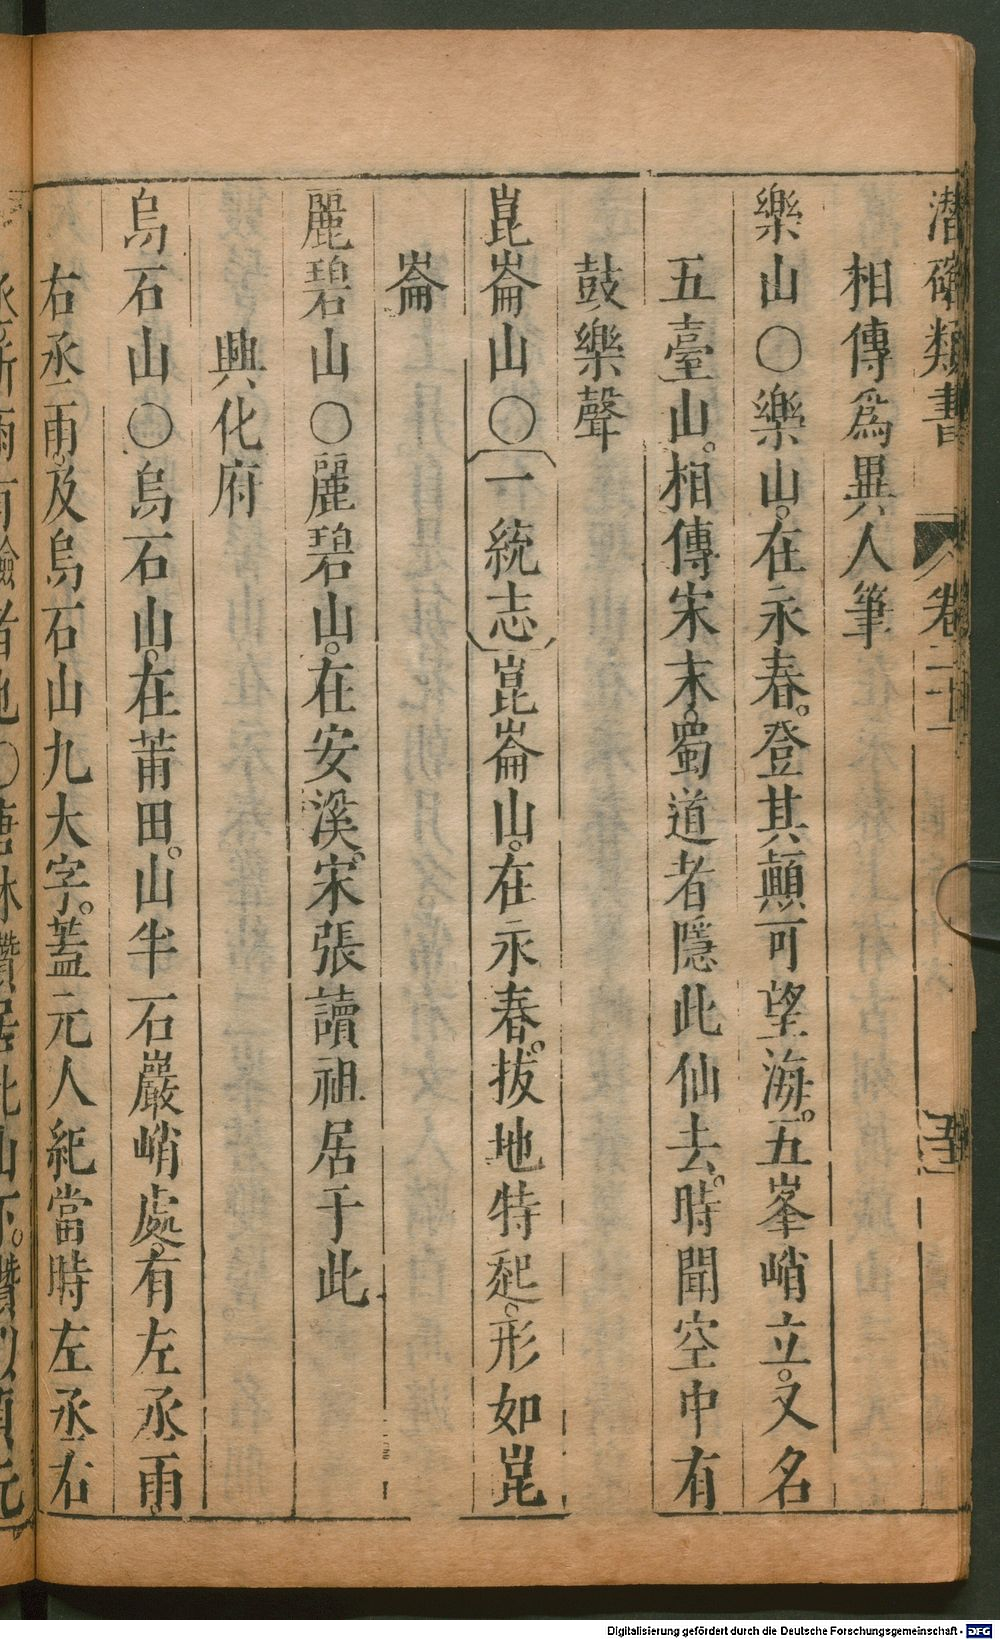 潛確類書 卷二十一
相傳爲異人筆
樂山○樂山。在永春。登其顛可望海。五峯峭立。又名
五臺山。相傳宋末。蜀道者隱此仙去。時聞空中有
鼓樂聲
崑崙山○〔一統志〕崑崙山。在永春。拔地特起。形如崑
崙
麗碧山○麗碧山。在安溪。宋張讀祖居于此
興化府
烏石山○烏石山。在莆田。山半石巖峭處。有左丞雨。
右丞雨。及烏石山九大字。蓋元人紀當時左丞右
Digitalisierung gefördert durch die Deutsche Forschungsgemeinschaft - DFG